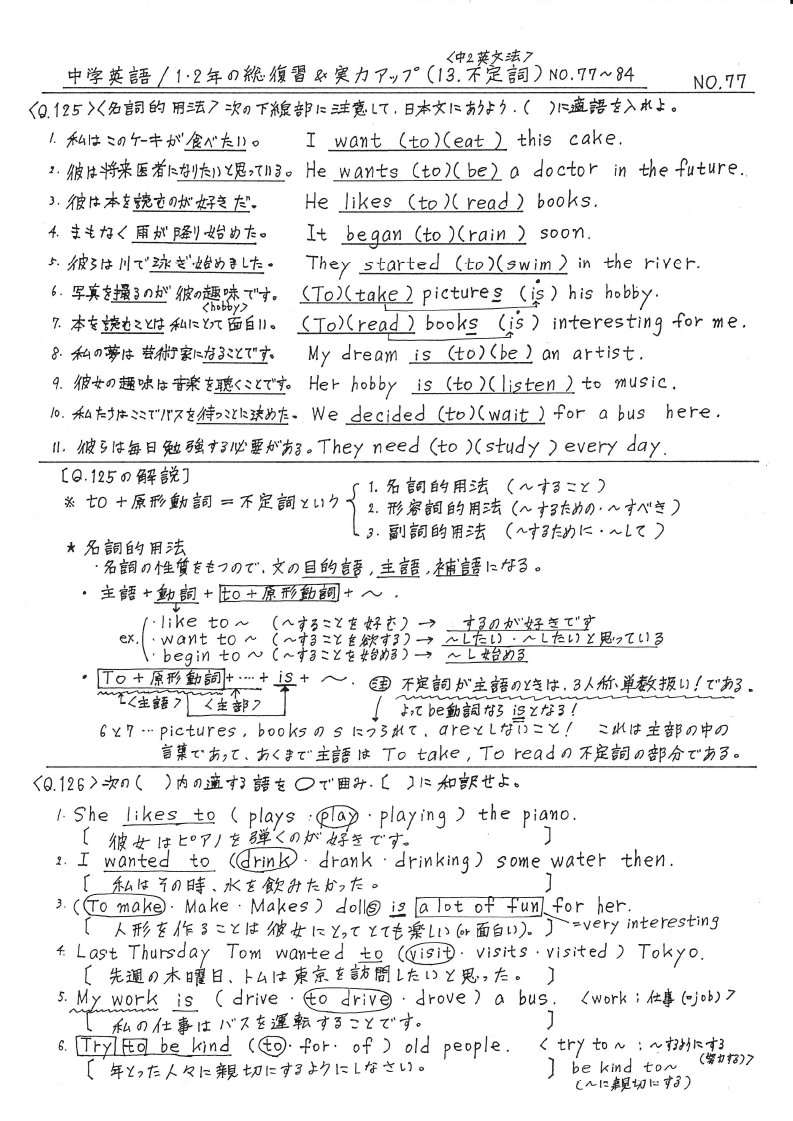 <中2英文法>
中学英語/1・2年の総復習&実力アップ(13.不定詞)NO.77~84 NO.77
<Q.125><名詞的用法>次の下線部に注意して、日本文にあうよう、( )に適語を入れよ。
1. 私はこのケーキが食べたい。 I want (to)(eat) this cake.
2. 彼は将来医者になりたいと思っている。 He wants (to)(be) a doctor in the future.
3. 彼は本を読むのが好きだ。 He likes (to)(read) books.
4. まもなく雨が降り始めた。 It began (to)(rain) soon.
5. 彼らは川で泳ぎ始めました。 They started (to)(swim) in the river.
6. 写真を撮るのが彼の趣味です。 (To)(take) pictures (is) his hobby.
<hobby>
7. 本を読むことは私にとって面白い。 (To)(read) books (is) interesting for me.
8. 私の夢は芸術家になることです。 My dream is (to)(be) an artist.
9. 彼女の趣味は音楽を聴くことです。 Her hobby is (to)(listen) to music.
10. 私たちはここでバスを待つことに決めた。 We decided (to)(wait) for a bus here.
11. 彼らは毎日勉強する必要がある。 They need (to)(study) every day.
[Q.125の解説]
※ to+原形動詞=不定詞という
1. 名詞的用法 (~すること)
2. 形容詞的用法 (~するための・~すべき)
3. 副詞的用法 (~するために・~して)
* 名詞的用法
・名詞の性質をもつので、文の目的語,主語,補語になる。
・主語+動詞+to+原形動詞+~.
ex. ・like to~ (~することを好む) → するのが好きです
・want to~ (~することを欲する) → ~したい・~したいと思っている
・begin to~ (~することを始める) → ~し始める
・To+原形動詞+……+is+~. 注 不定詞が主語のときは、3人称・単数扱い!である。
<主語> <主部> よってbe動詞なら is となる!
6と7…pictures, booksのsにつられて、areとしないこと! これは主部の中の
言葉であって、あくまで主語は To take, To readの不定詞の部分である。
<Q.126>次の( )内の適する語を○で囲み、[ ]に和訳せよ。
1. She likes to (plays・play・playing) the piano.
[ 彼女はピアノを弾くのが好きです。 ]
2. I wanted to (drink・drank・drinking) some water then.
[ 私はその時、水を飲みたかった。 ]
3. (To make・Make・Makes) dolls is a lot of fun for her.
[ 人形を作ることは彼女にとってとても楽しい(or 面白い)。 ] =very interesting
4. Last Thursday Tom wanted to (visit・visits・visited) Tokyo.
[ 先週の木曜日、トムは東京を訪問したいと思った。 ]
5. My work is (drive・to drive・drove) a bus. <work;仕事(=job)>
[ 私の仕事はバスを運転することです。 ]
6. Try to be kind (to・for・of) old people. <try to~;~するようにする
(努力する)>
[ 年とった人々に親切にするようにしなさい。 ] be kind to~
(~に親切にする)